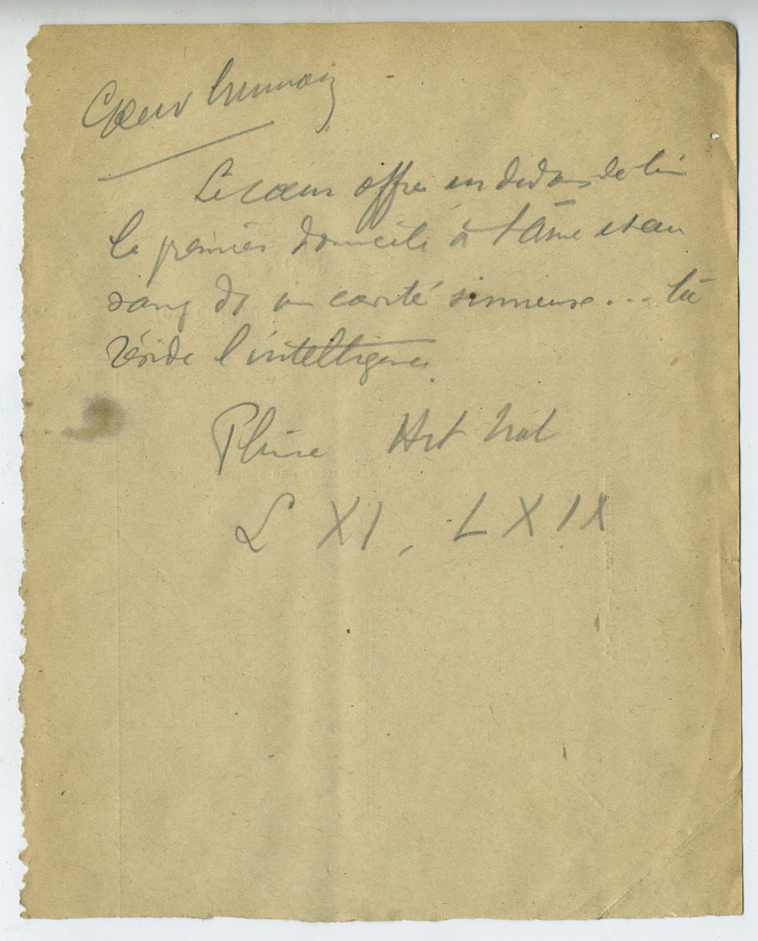 Cœur humain
Le cœur offre en dedans de lui
le premier domicile à l'âme et au
sang ds un cavité sinueuse... là
réside l'intelligence
Pline Hist Nat
L XI, LXIX